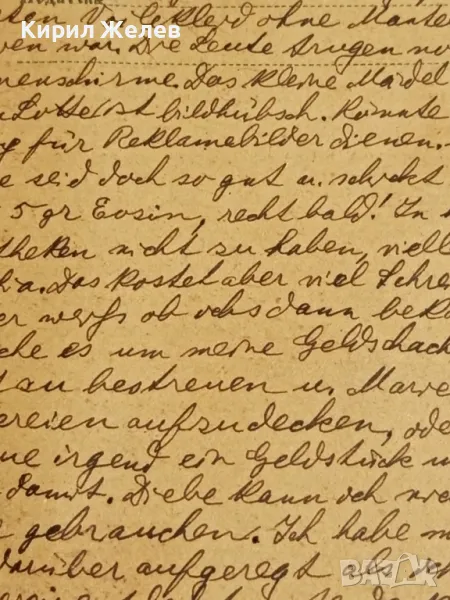 Кирил Желев
ohne Mante
war. Die Leute trugen no
menschirme. Das kleine Mädel
Lotte ist bildhübsch. Könnte
g für Reklamebilder dienen.
e seid doch so gut u. schickt
5 gr Eosin, recht bald! In
theken nicht zu haben, viell
a. Das kostet aber viel Schre
er weiss ob ichs dann beko
che es um meine Geldschach
d zu bestreuen u. Marie
ereien aufzudecken, ode
ne irgend ein Geldstück u
damit. Diebe kann ich nic
gebrauchen. Ich habe m
darüber aufgeregt als ich
bazar